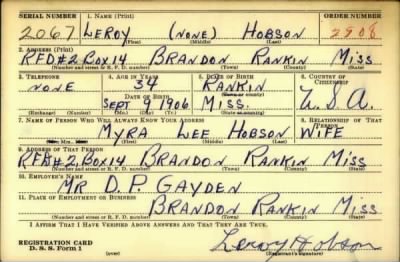 SERIAL NUMBER 1. NAME (Print) ORDER NUMBER
2067 LEROY (NONE) HOBSON 2908
(First) (Middle) (Last)
2. ADDRESS (Print)
RFD#2 BOX 14 BRANDON RANKIN MISS
(Number and street or R. F. D. number) (Town) (County) (State)
3. TELEPHONE 4. AGE IN YEARS 5. PLACE OF BIRTH 6. COUNTRY OF CITIZENSHIP
NONE 34 RANKIN
DATE OF BIRTH (Town or county)
SEPT 9 1906 MISS. U.S.A.
(Exchange) (Number) (Mo.) (Day) (Yr.) (State or country)
7. NAME OF PERSON WHO WILL ALWAYS KNOW YOUR ADDRESS 8. RELATIONSHIP OF THAT PERSON
MYRA LEE HOBSON WIFE
(Mr., Mrs., Miss) (First) (Middle) (Last)
9. ADDRESS OF THAT PERSON
RFD#2, BOX 14 BRANDON RANKIN MISS
(Number and street or R. F. D. number) (Town) (County) (State)
10. EMPLOYER'S NAME
MR D. P. GAYDEN
11. PLACE OF EMPLOYMENT OR BUSINESS
BRANDON RANKIN MISS
(Number and street or R. F. D. number) (Town) (County) (State)
I AFFIRM THAT I HAVE VERIFIED ABOVE ANSWERS AND THAT THEY ARE TRUE.
REGISTRATION CARD
D. S. S. Form 1 (over) Leroy Hobson
(Registrant's signature)